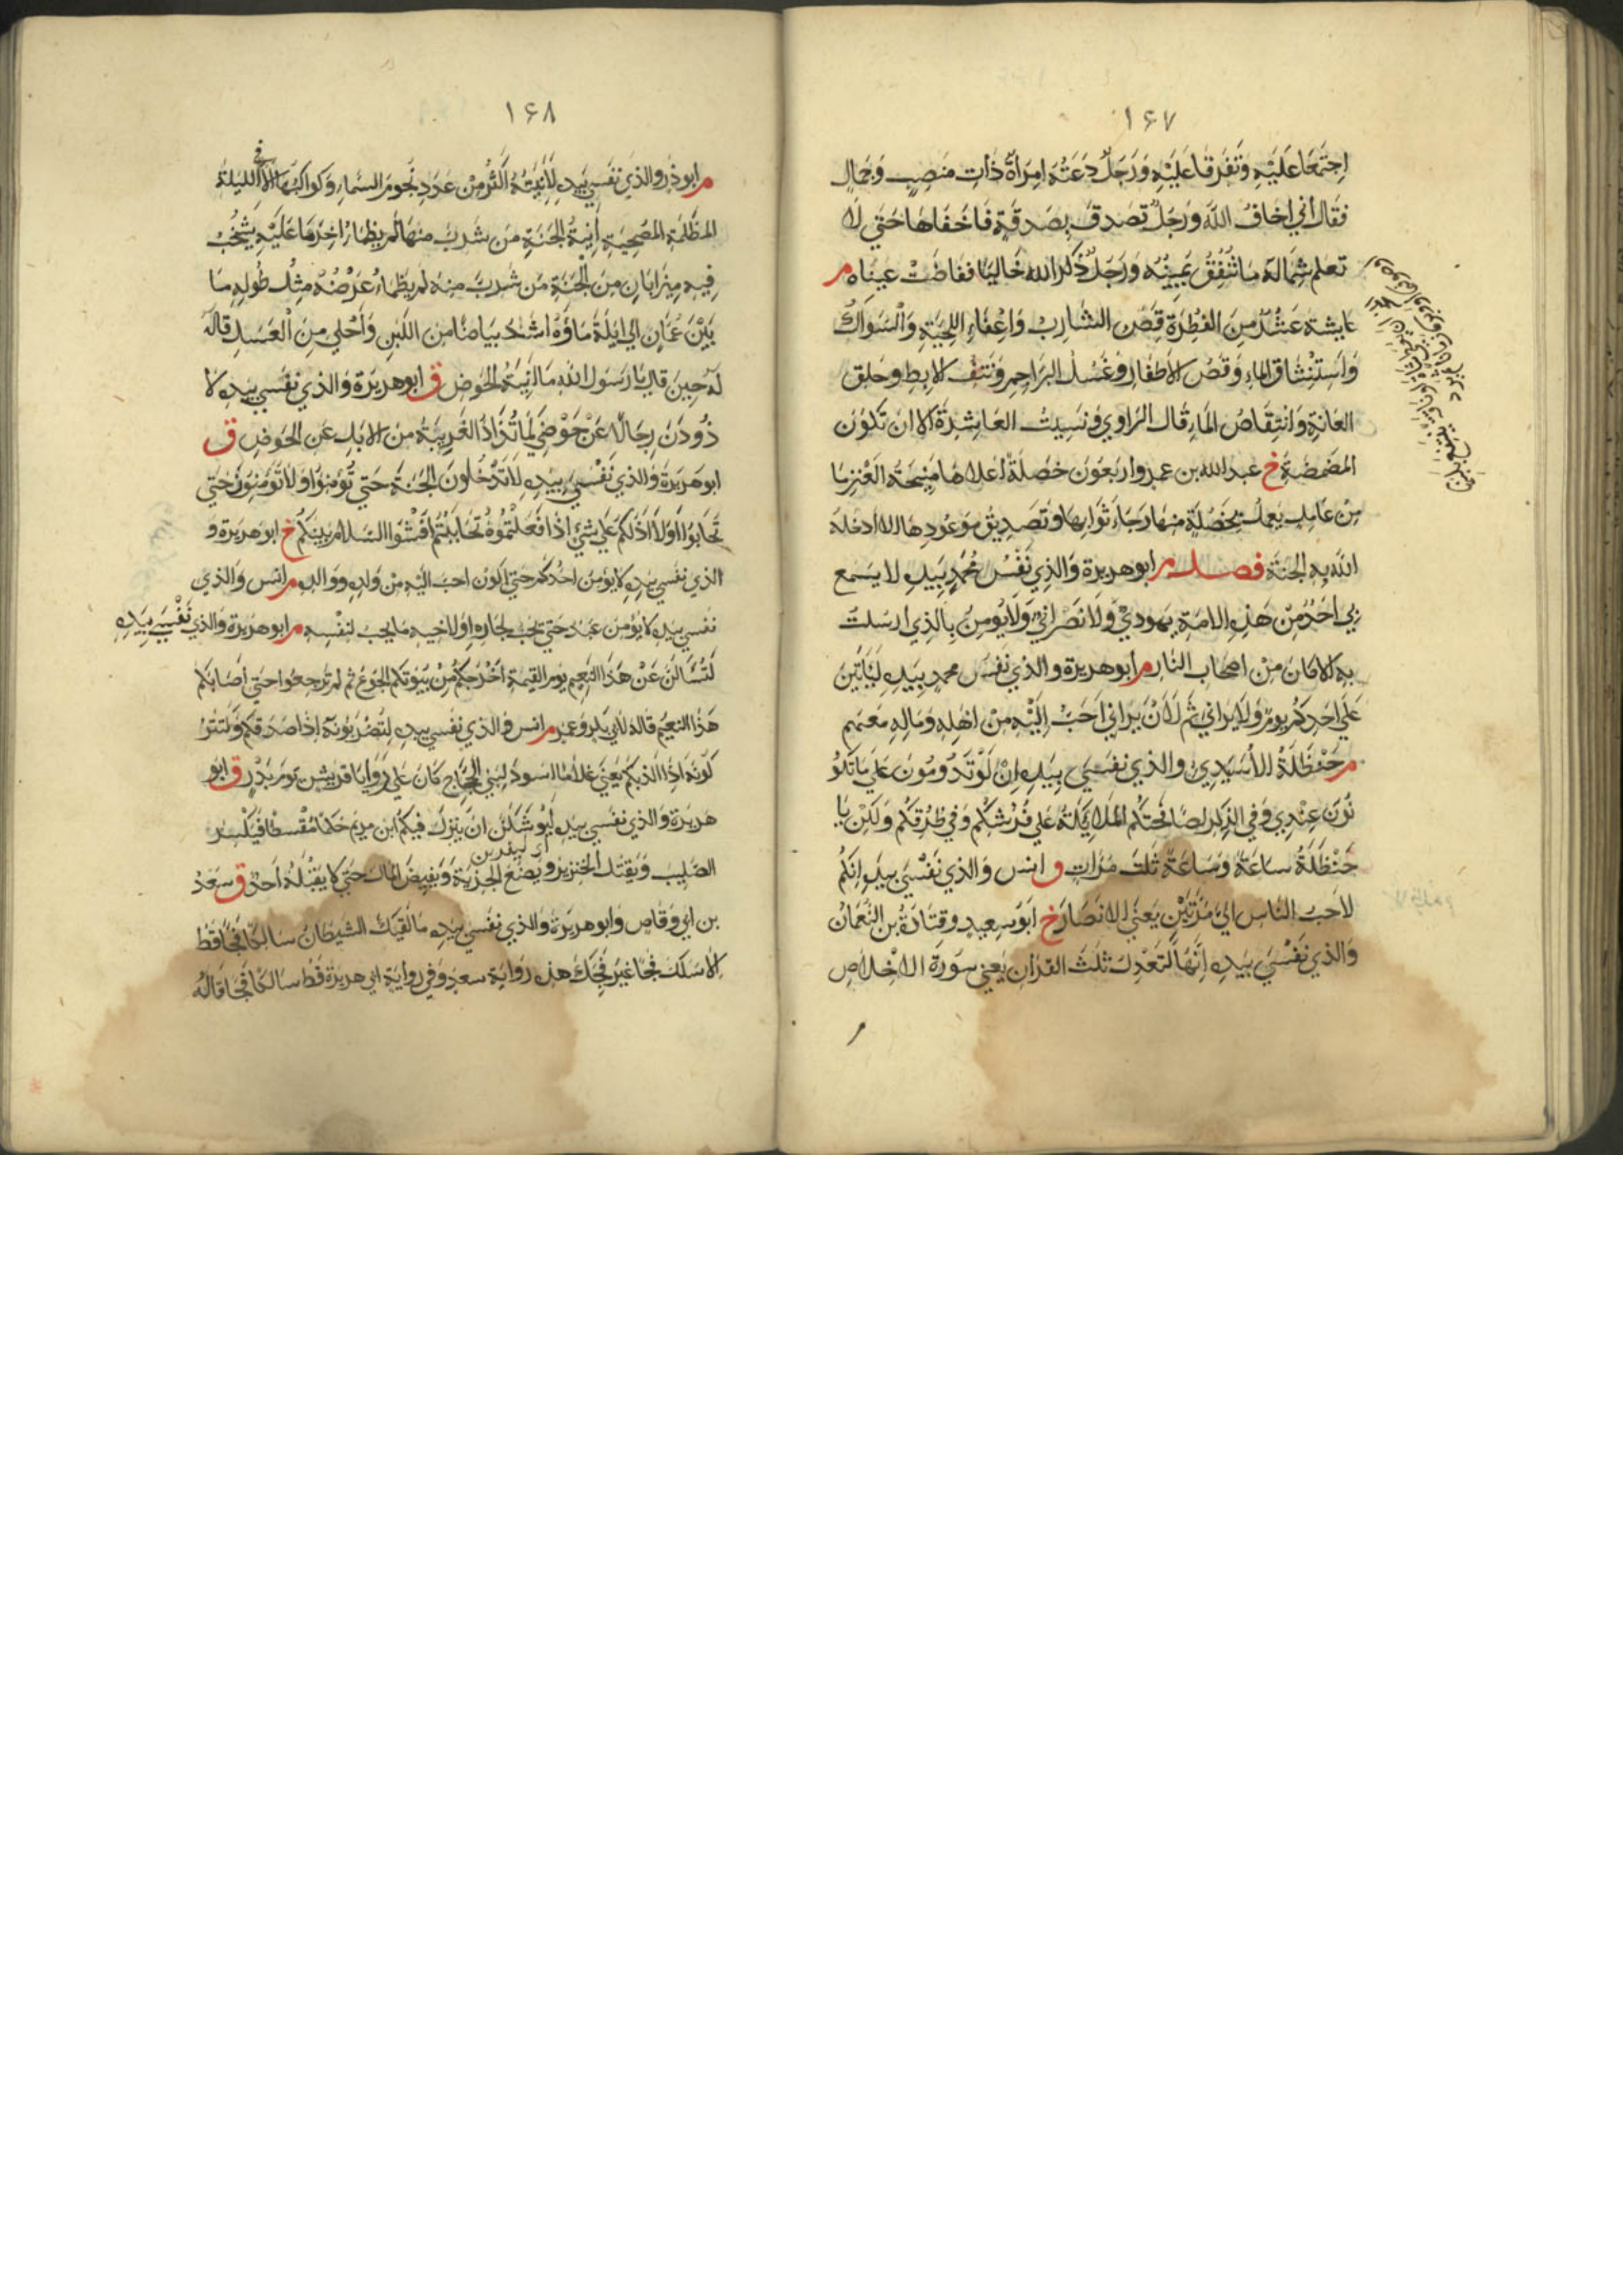 ١٤٧
اجتمعا عليه وتفرقا عليه ورجل دعته امرأة ذات منصب وجمال
فقال اني اخاف الله ورجل تصدق بصدقة فاخفاها حتى لا
تعلم شماله ما تنفق يمينه ورجل ذكر الله خاليا ففاضت عيناه م
عايشة عشر من الفطرة قص الشارب واعفاء اللحية والسواك
واستنشاق الماء وقص الاظفار وغسل البراجم ونتف الابط وحلق
العانة وانتقاص الماء قال الراوي ونسيت العاشرة الا ان تكون
المضمضة خ عبد الله بن عمرو اربعون خصلة اعلاها منيحة العنز ما
من عامل يعمل بخصلة منها رجاء ثوابها وتصديق موعودها الا ادخله
الله به الجنة فصل م ابو هريرة والذي نفس محمد بيده لا يسمع
بي احد من هذه الامة يهودي ولا نصراني ولا يومن بالذي ارسلت
به الا كان من اصحاب النار م ابو هريرة والذي نفس محمد بيده ليأتين
على احدكم يوم ولا يراني ثم لان يراني احب اليه من اهله وماله معهم
م حنظلة الاسيدي والذي نفسي بيده ان لو تدومون على ما تكو
نون عندي وفي الذكر لصافحتكم الملائكة على فرشكم وفي طرقكم ولكن يا
حنظلة ساعة وساعة ثلث مرات ق انس والذي نفسي بيده انكم
لاحب الناس الي مرتين يعني الانصار خ ابو سعيد وقتادة بن النعمان
والذي نفسي بيده انها لتعدل ثلث القران يعني سورة الاخلاص
١٤٨
م ابو ذر والذي نفسي بيده لآنيته اكثر من عدد نجوم السماء وكواكبها الا في الليلة
المظلمة المصحية آنية الجنة من شرب منها لم يظما اخر ما عليه يشخب
فيه ميزابان من الجنة من شرب منه لم يظماء عرضه مثل طوله ما
بين عمان الى ايلة ماؤه اشد بياضا من اللبن واحلى من العسل قاله
له حين قال يا رسول الله ما آنية الحوض ق ابو هريرة والذي نفسي بيده لا
ذودن رجالا عن حوضي كما تذاد الغريبة من الابل عن الحوض ق
ابو هريرة والذي نفسي بيده لا تدخلون الجنة حتى تؤمنوا ولا تؤمنون حتى
تحابوا اولا ادلكم على شئ اذا فعلتموه تحاببتم افشوا السلام بينكم خ ابو هريرة و
الذي نفسي بيده لا يؤمن احدكم حتى اكون احب اليه من ولده ووالده م انس والذي
نفسي بيده لا يؤمن عبد حتى يحب لجاره او لاخيه ما يحب لنفسه م ابو هريرة والذي نفسي بيده
لتسألن عن هذا النعيم يوم القيمة اخرجكم من بيوتكم الجوع ثم لم ترجعوا حتى اصابكم
هذا النعيم قاله لابي بكر وعمر م انس والذي نفسي بيده لتضربونه اذا صدقكم ولتتر
كونه اذا كذبكم يعني غلاما اسود لبني الحجاج كان على روايا قريش يوم بدر ق ابو
هريرة والذي نفسي بيده ليوشكن ان ينزل فيكم ابن مريم حكما مقسطا فيكسر
الصليب ويقتل الخنزير ويضع الجزية ويفيض المال حتى لا يقبله احد ق سعد
بن ابي وقاص وابو هريرة والذي نفسي بيده ما لقيك الشيطان سالكا فجا قط
الا سلك فجا غير فجك هذه رواية سعد وفي رواية ابي هريرة قط سالكا فجا قاله